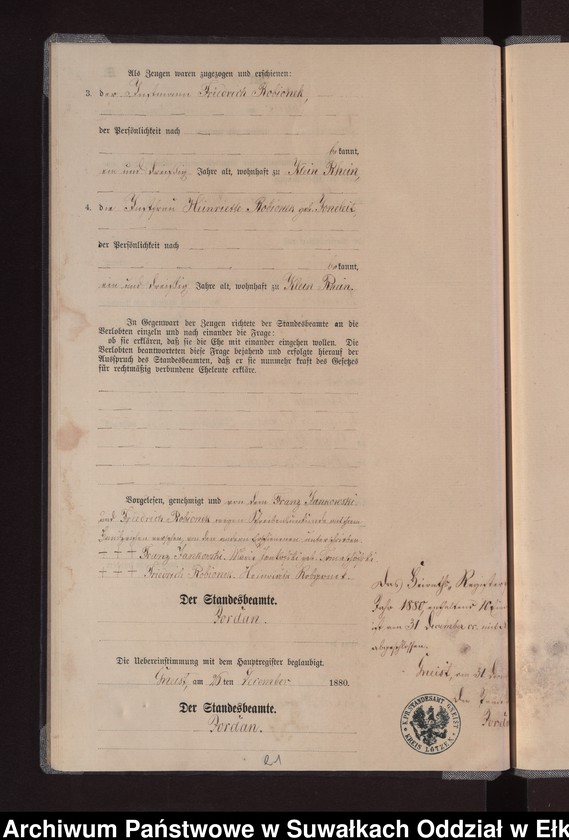 Als Zeugen waren zugezogen und erschienen:
3. der Instmann Friedrich Robionek,
der Persönlichkeit nach
bekannt,
ein und dreißig Jahre alt, wohnhaft zu Klein Rhein,
4. die Instfrau Heinriette Robionek geb.
der Persönlichkeit nach
bekannt,
ein und dreißig Jahre alt, wohnhaft zu Klein Rhein.
In Gegenwart der Zeugen richtete der Standesbeamte an die
Verlobten einzeln und nach einander die Frage:
ob sie erklären, daß sie die Ehe mit einander eingehen wollen. Die
Verlobten beantworteten diese Frage bejahend und erfolgte hierauf der
Ausspruch des Standesbeamten, daß er sie nunmehr kraft des Gesetzes
für rechtmäßig verbundene Eheleute erkläre.
Vorgelesen, genehmigt und von dem Franz Jankowski
und Friedrich Robionek wegen Schreibensunkunde mit ihren
Handzeichen versehen, von den unterschrieben.
+++ Franz Jankowski. Marie geb.
+++ Friedrich Robionek.
Der Standesbeamte.
Jordan.
Das Heiraths-Register
Jahr 1880,
ist am 31 December cr.
abgeschlossen.
Gneist, am 31
Der
Jordan
Die Uebereinstimmung mit dem Hauptregister beglaubigt.
Gneist, am 26 ten December 1880.
Der Standesbeamte.
Jordan.
K. PR. STANDESAMT GNEIST
KREIS LÖTZEN
21
Archiwum Państwowe w Suwałkach Oddział w Ełk